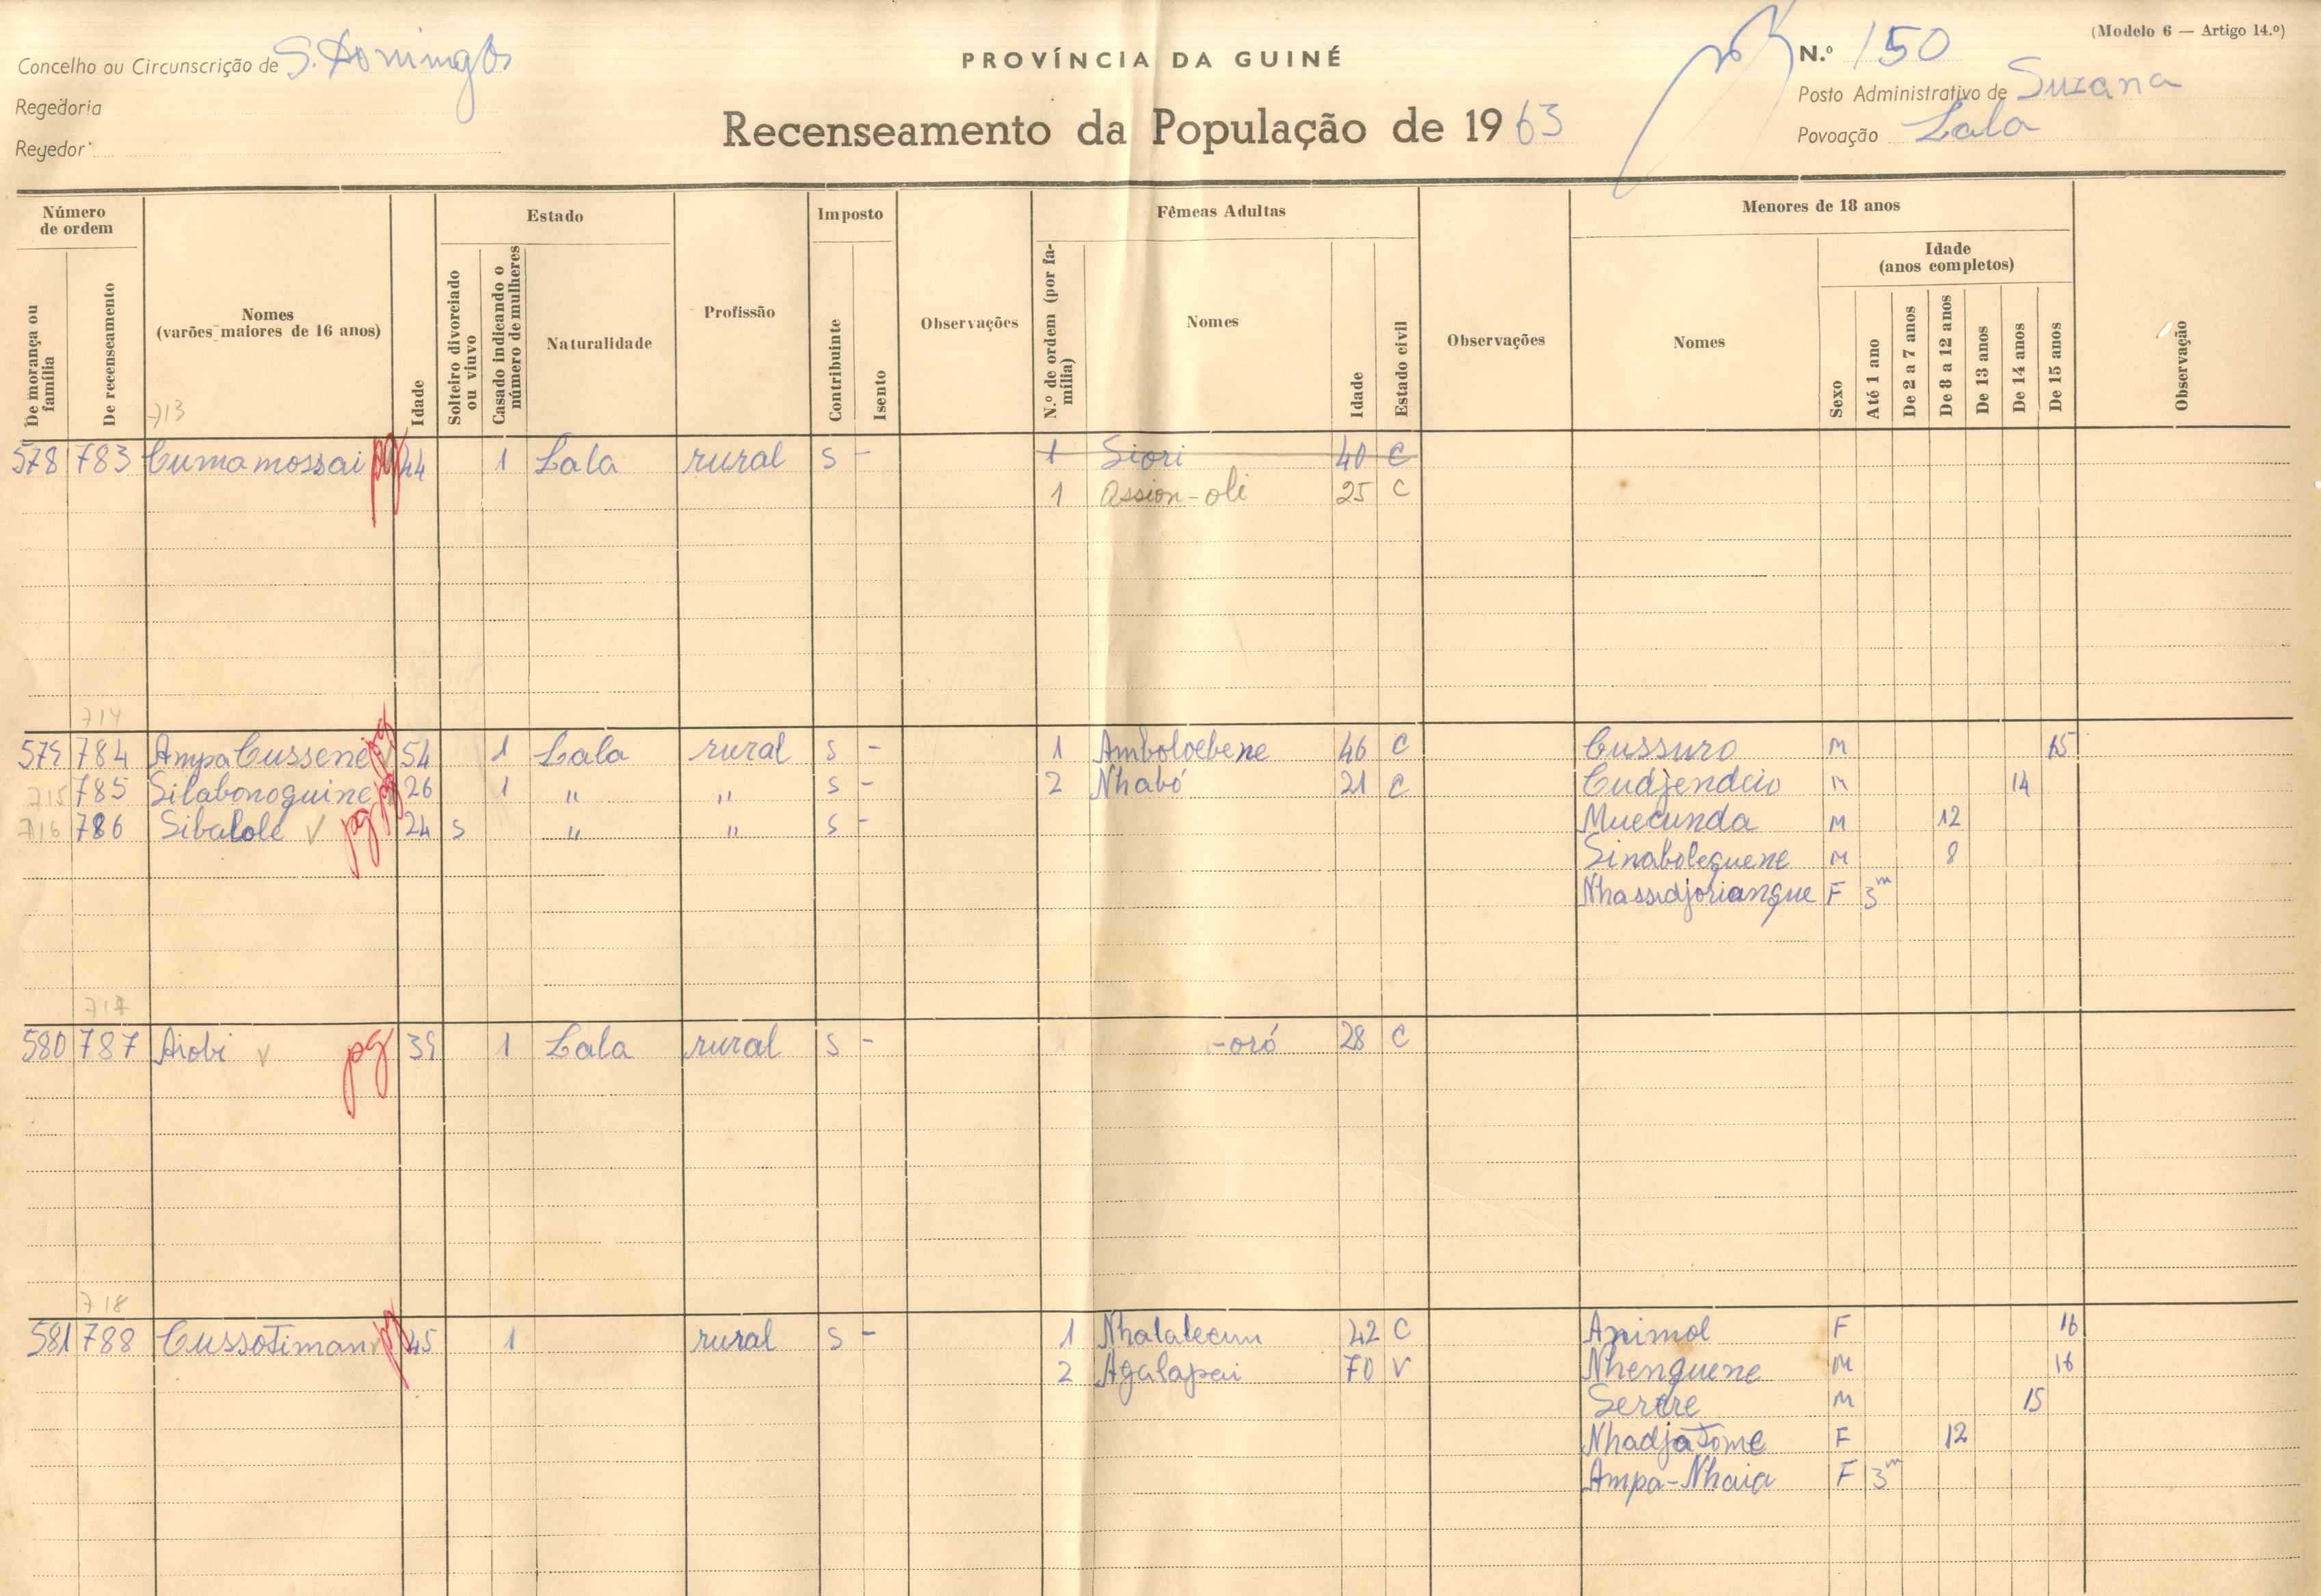 (Modelo 6 — Artigo 14.º)
Concelho ou Circunscrição de S. Domingos
PROVÍNCIA DA GUINÉ
N.º 150
Regedoria
Posto Administrativo de Suzana
Recenseamento da População de 1963
Regedor
Povoação Lala
Número de ordem
Estado
Imposto
Fêmeas Adultas
Menores de 18 anos
Idade (anos completos)
De morança ou família
De recenseamento
Nomes (varões maiores de 16 anos)
Idade
Solteiro divorciado ou viuvo
Casado indicando o número de mulheres
Naturalidade
Profissão
Contribuinte
Isento
Observações
N.º de ordem (por família)
Nomes
Idade
Estado civil
Observações
Nomes
Sexo
Até 1 ano
De 2 a 7 anos
De 8 a 12 anos
De 13 anos
De 14 anos
De 15 anos
Observação
713
578 783 Cumamossai pg 44 1 Lala rural S - 1 Siori 40 C
1 Assion-oli 25 C
714
579 784 Ampa Cussene pg 54 1 Lala rural S - 1 Amboloebene 46 C Cussuro M 15
715 785 Silabonoguine pg 26 1 " " S - 2 Nhabó 21 C Cudjendcio M 14
716 786 Sibalole V pg 24 S " " S - Muecunda M 12
Sinaboleguene M 8
Nhassidjoriangue F 3m
717
580 787 Aiobi V pg 39 1 Lala rural S - -oró 28 C
718
581 788 Cussotiman pg 45 1 rural S - 1 Nhalalecun 42 C Animol F 16
2 Agalapai 70 V Nhenguene M 16
Serere M 15
Nhadjatome F 12
Ampa-Nhaia F 3m